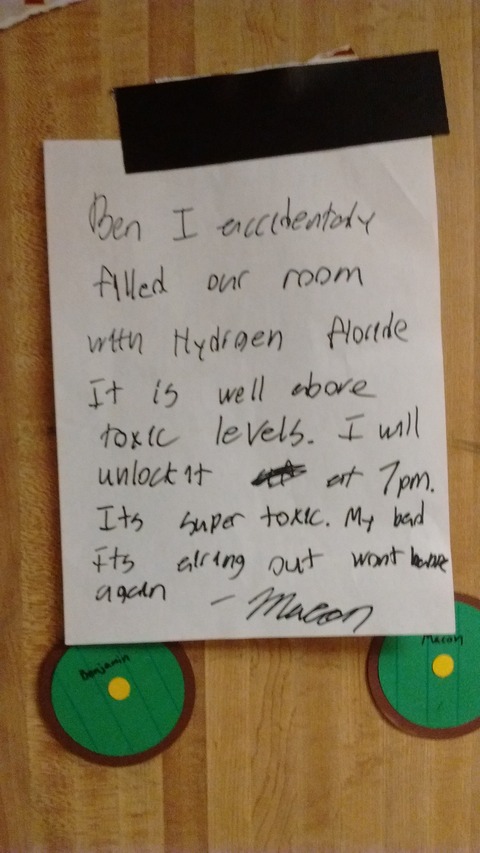 Ben I accidentaly
filled our room
with Hydrogen floride
It is well above
toxic levels. I will
unlock it at 7pm.
Its super toxic. My bad
its airing out wont
again - Macon
Benjamin
Macon